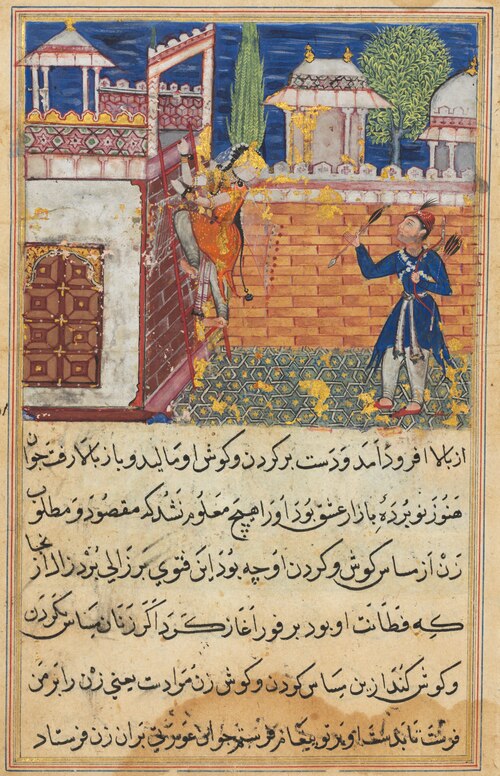 از بالا افرود آمد و دست بر کردن و کوش او مالید و باز بالا رفت جوان
هنوز نو بردهٔ بازار عشق بود او را هیچ معلوم نشد که مقصود و مطلوب
زن از مساس کوش و کردن او چه بود این فتوی بر زالی برد زال از
که فطانت او بود بر فور اغاز کرد اکر زنان مساس بکردن
و کوش کنند ازین مساس کردن و کوش زن مرادست یعنی زن را بر من
بران زن فرستاد